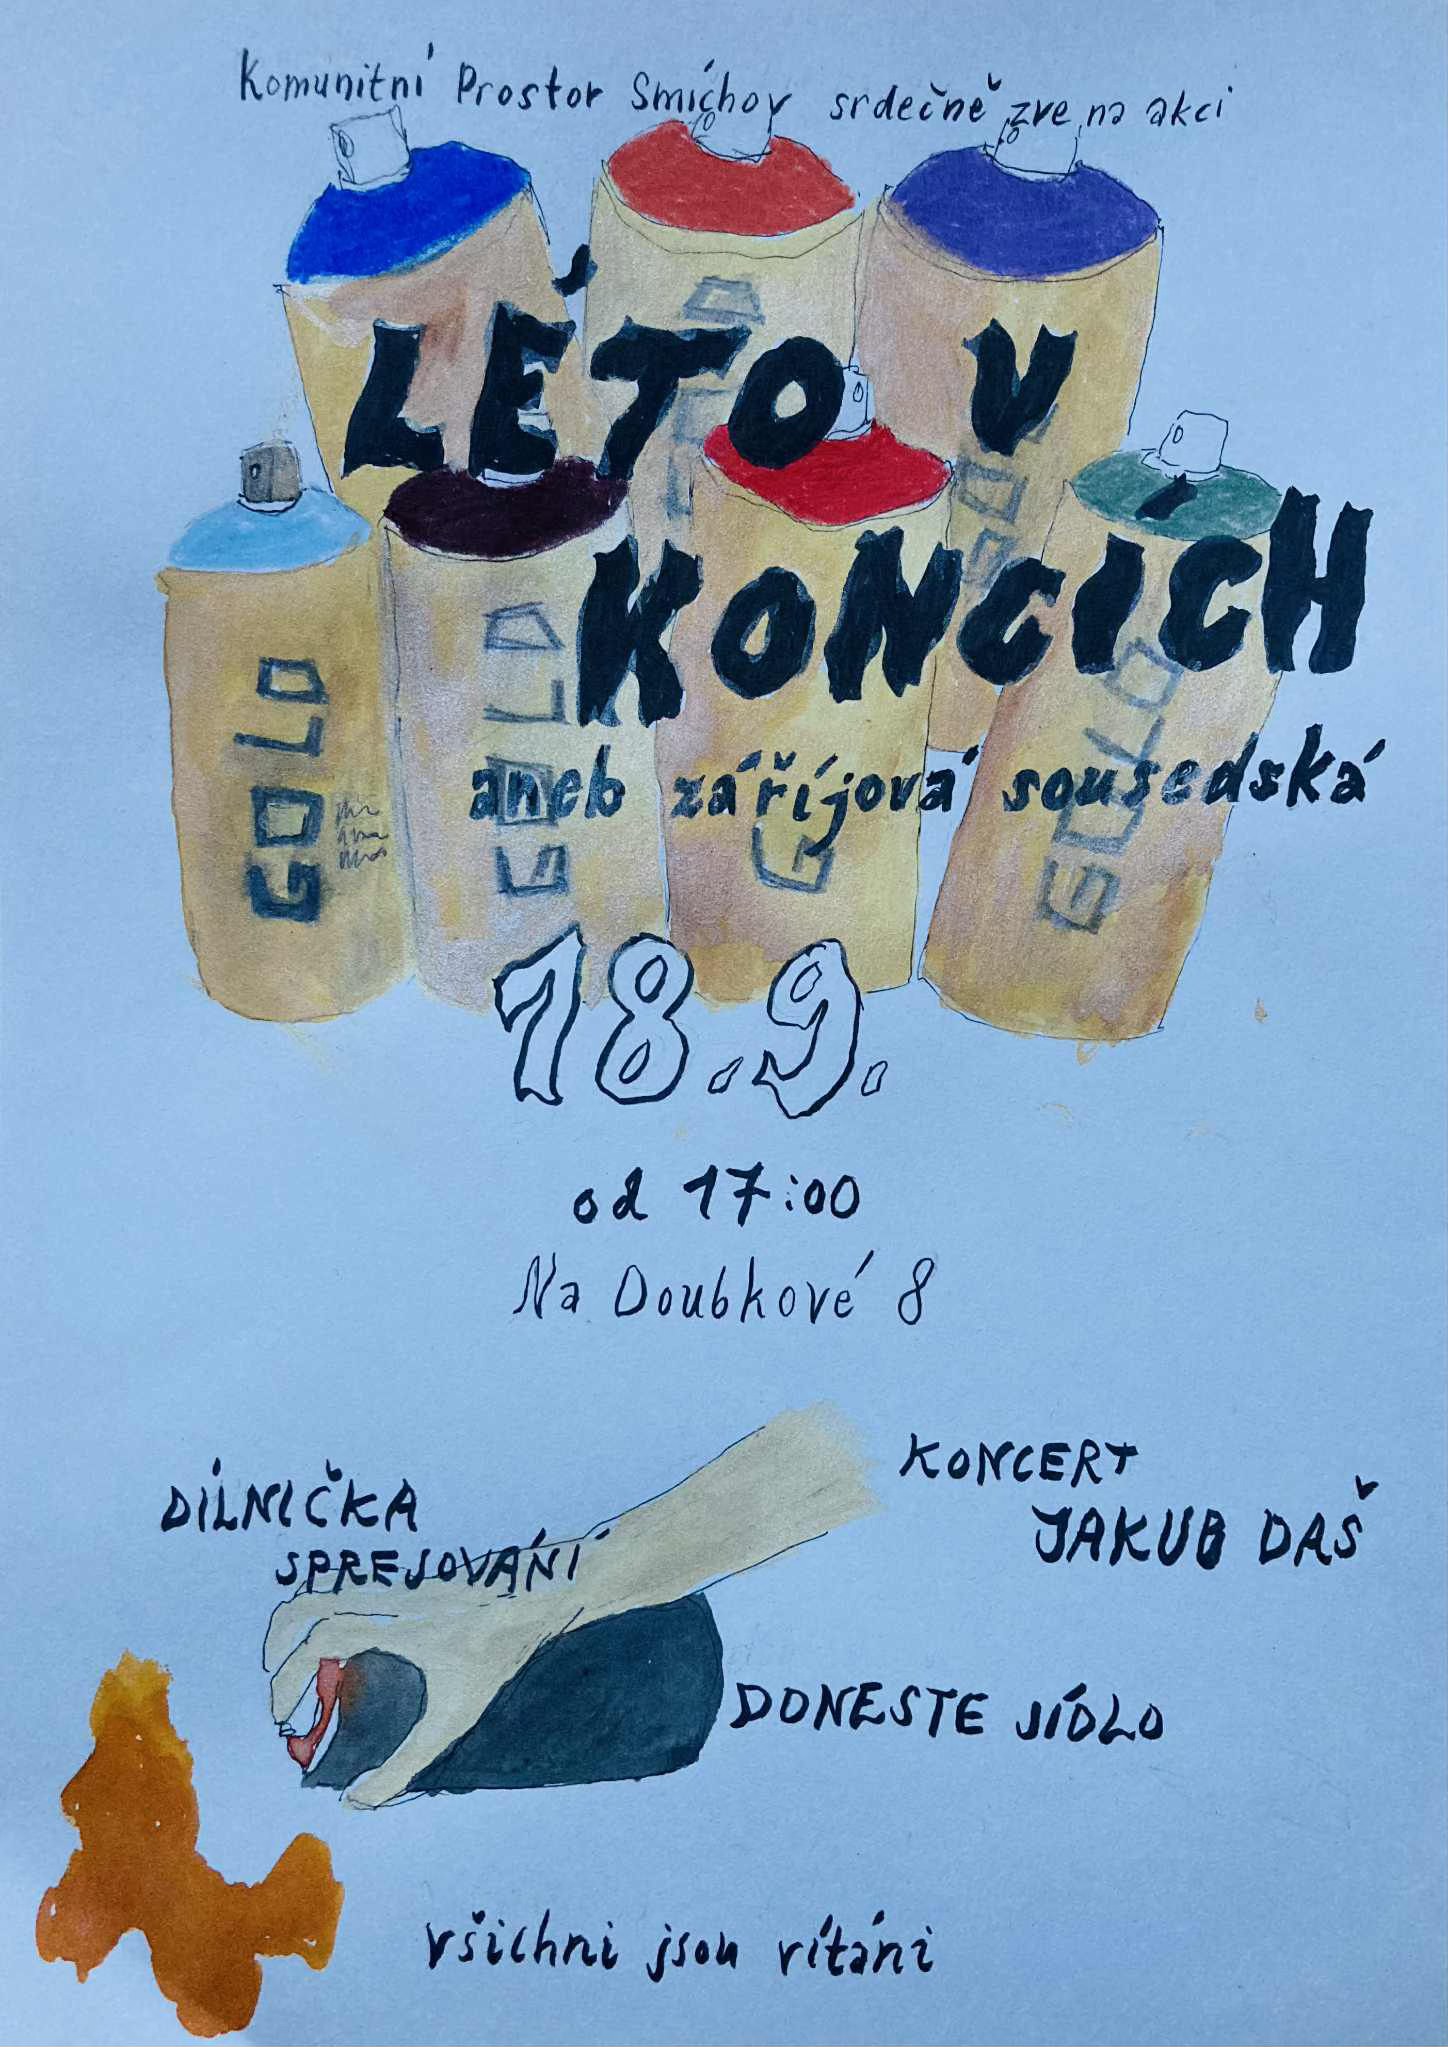 Komunitní Prostor Smíchov srdečně zve na akci
LÉTO V
KONCÍCH
aneb zářijová sousedská
GOLD
GOLD
G
GOLD
18.9.
od 17:00
Na Doubkové 8
DÍLNIČKA
SPREJOVÁNÍ
KONCERT
JAKUB DAŠ
DONESTE JÍDLO
všichni jsou vítáni